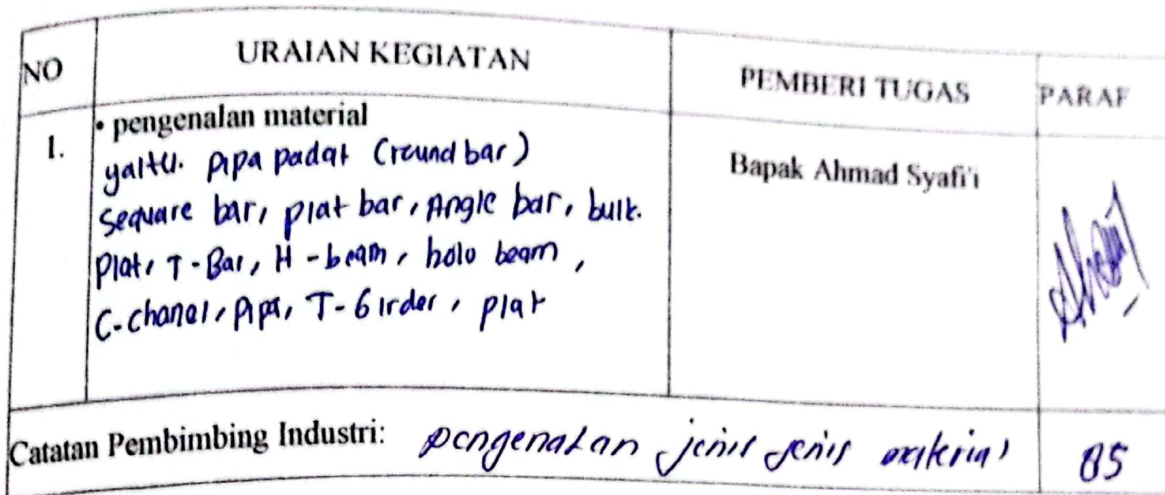 NO URAIAN KEGIATAN PEMBERI TUGAS PARAF
1. • pengenalan material Bapak Ahmad Syafi'i
yaitu. pipa padat (round bar)
Sequare bar, plat bar, Angle bar, bulk.
Plat, T-Bar, H-beam, holo beam,
C-chanel, pipa, T-Girder, plat
Catatan Pembimbing Industri: pengenalan jenis jenis material 85